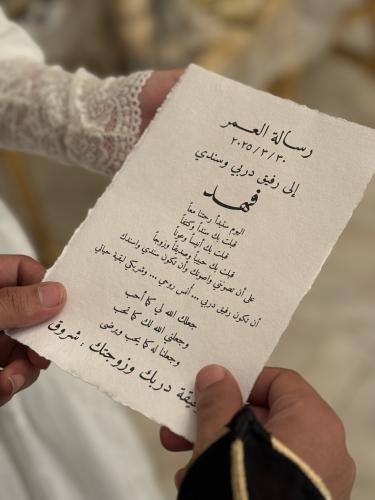 رسالة العمر
٢٠٢٥/٣/٣٠
إلى رفيق دربي وسندي
فهد
اليوم ستبدأ رحلتنا معاً
قبلت بك سنداً وكتفاً
قبلت بك أنيساً وعوناً
قبلت بك حبيباً وصديقاً وزوجاً
على أن تصونني وأصونك وأن تكون سندي وأسندك
أن تكون رفيق دربي ... أنس روحي ... وشريكي لبقية حياتي
جعلك الله لي كما أحب
وجعلني الله لك كما تحب
وجعلنا له كما يحب ويرضى
دربك وزوجتك : شروق